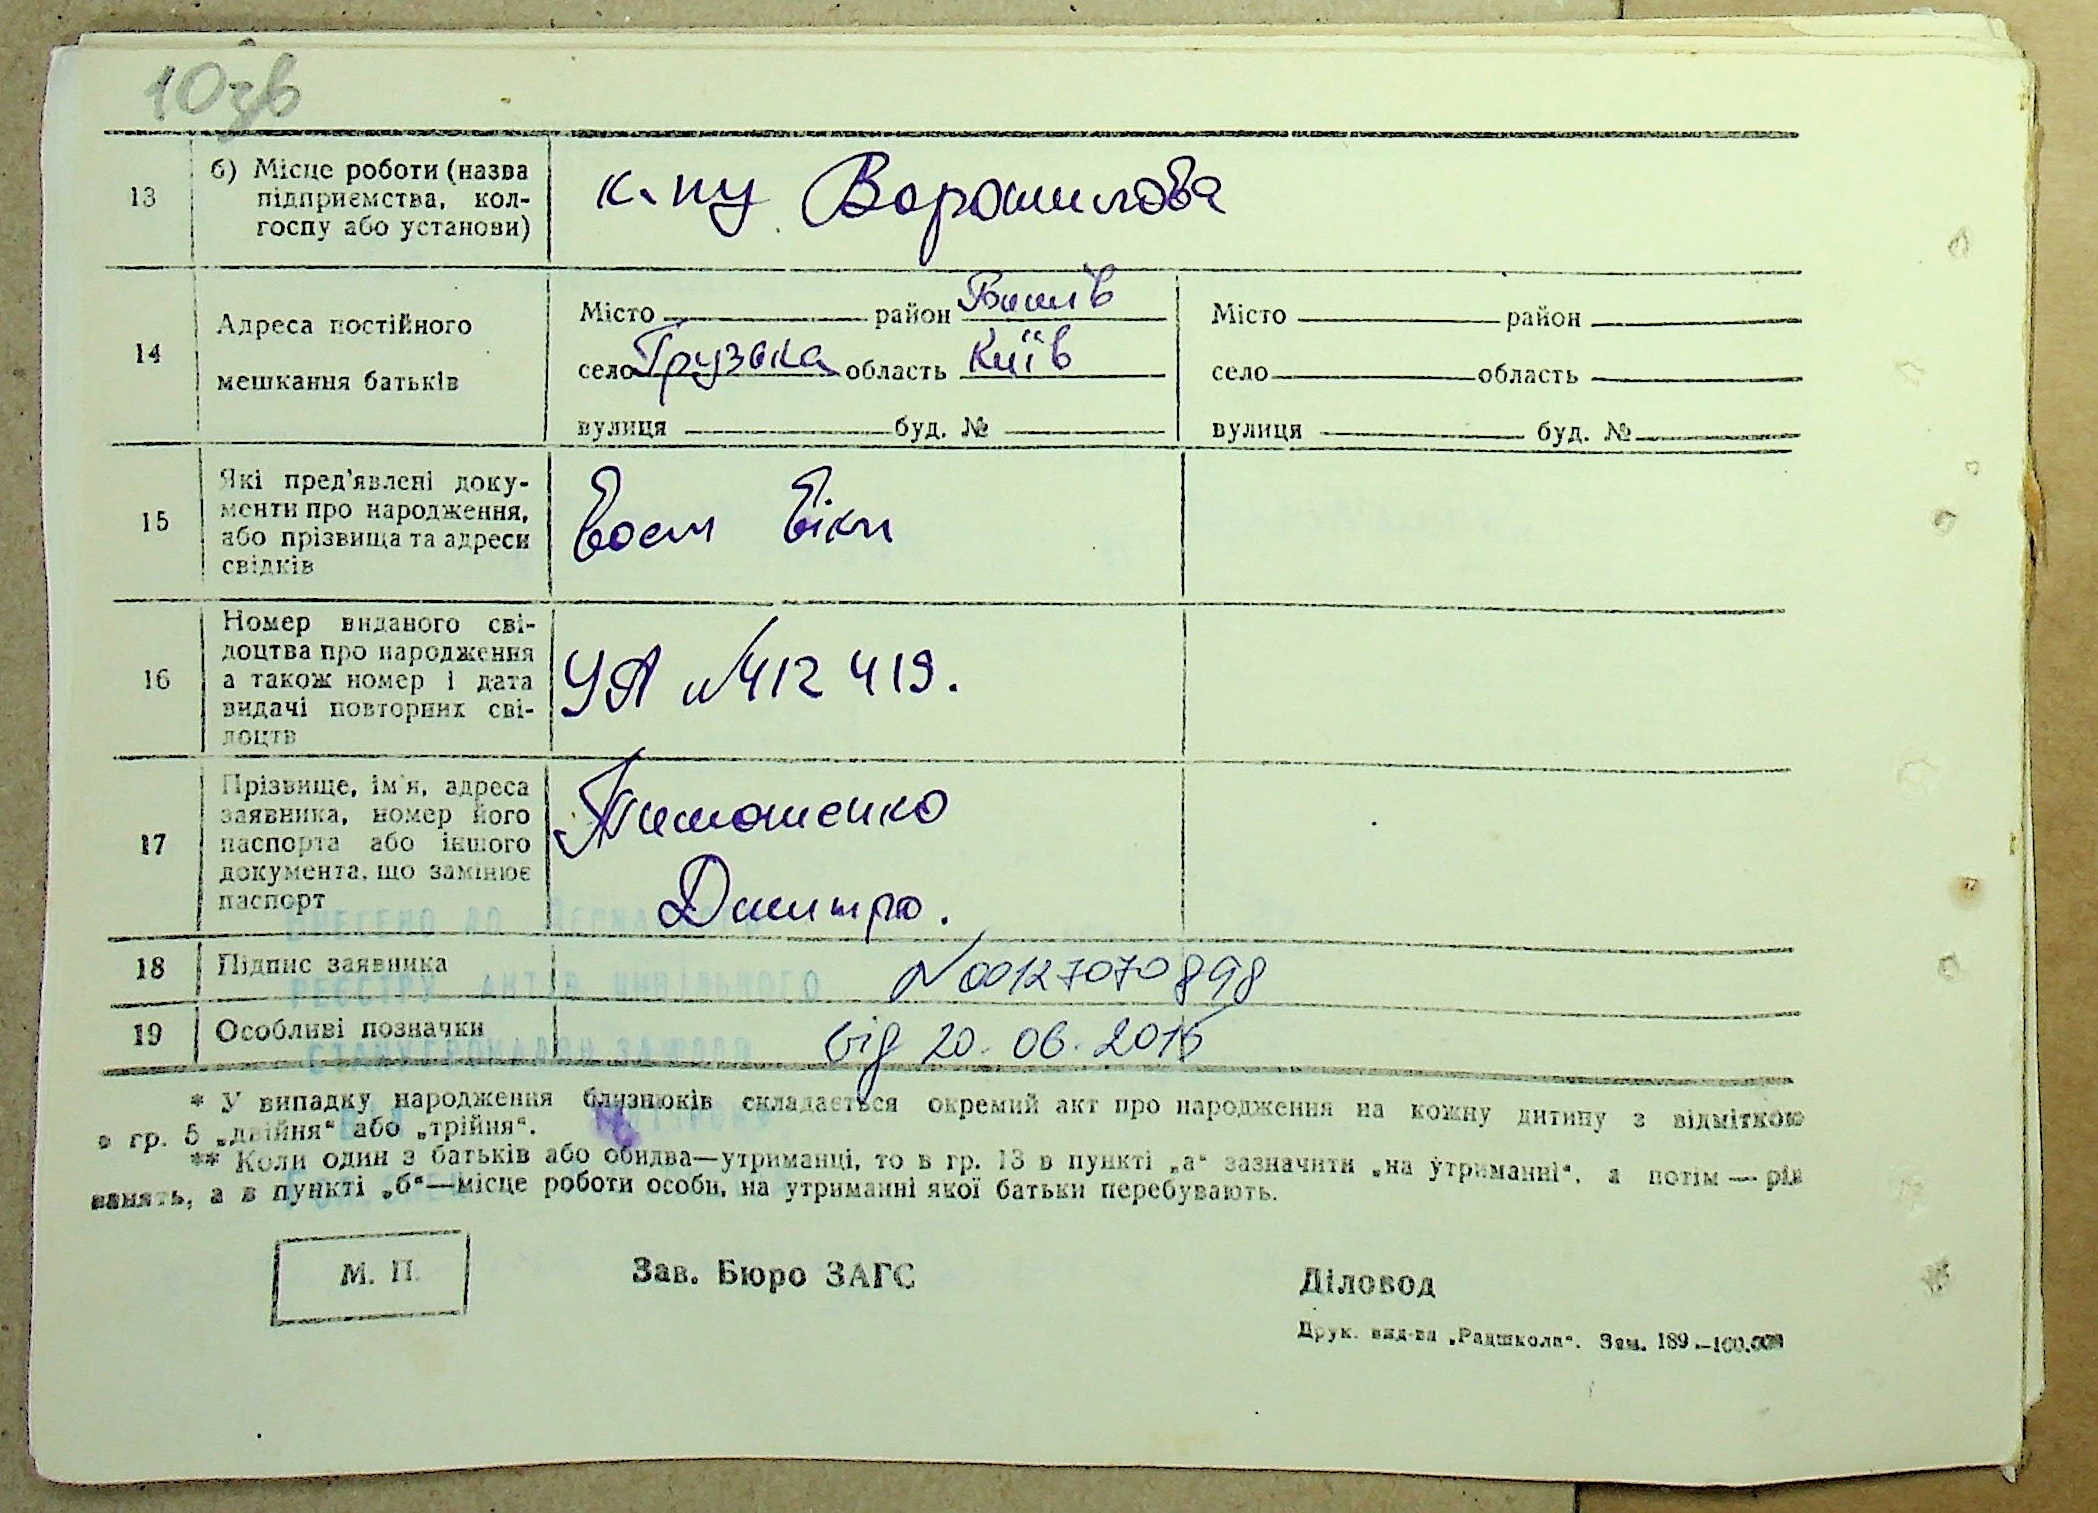 10зв
13
б) Місце роботи (назва
підприємства, кол-
госпу або установи)
к-пу Ворошилова
14
Адреса постійного
мешкання батьків
Місто район
село Грузька область Київ
вулиця буд. №
Місто район
село область
вулиця буд. №
15
Які пред'явлені доку-
менти про народження,
або прізвища та адреси
свідків
16
Номер виданого сві-
доцтва про народження
а також номер і дата
видачі повторних сві-
доцтв
УЯ №412419.
17
Прізвище, ім'я, адреса
заявника, номер його
паспорта або іншого
документа, що замінює
паспорт
Тимошенко
Дмитро.
ВНЕСЕНО ДО ДЕРЖАВНОГО
18
Підпис заявника
РЕЄСТРУ АКТІВ ЦИВІЛЬНОГО
№00127070898
19
Особливі позначки
СТАНУ ГРОМАДЯН ЗА
від 20.06.2015
* У випадку народження близнюків складається окремий акт про народження на кожну дитину з відміткою
в гр. 5 „двійня“ або „трійня“.
** Коли один з батьків або обидва—утриманці, то в гр. 13 в пункті „а“ зазначити „на утриманні“, а потім — рід
занять, а в пункті „б“—місце роботи особи, на утриманні якої батьки перебувають.
М. П.
Зав. Бюро ЗАГС
Діловод
Друк. вид-ва „Радшкола“. Зам. 189.—100.000